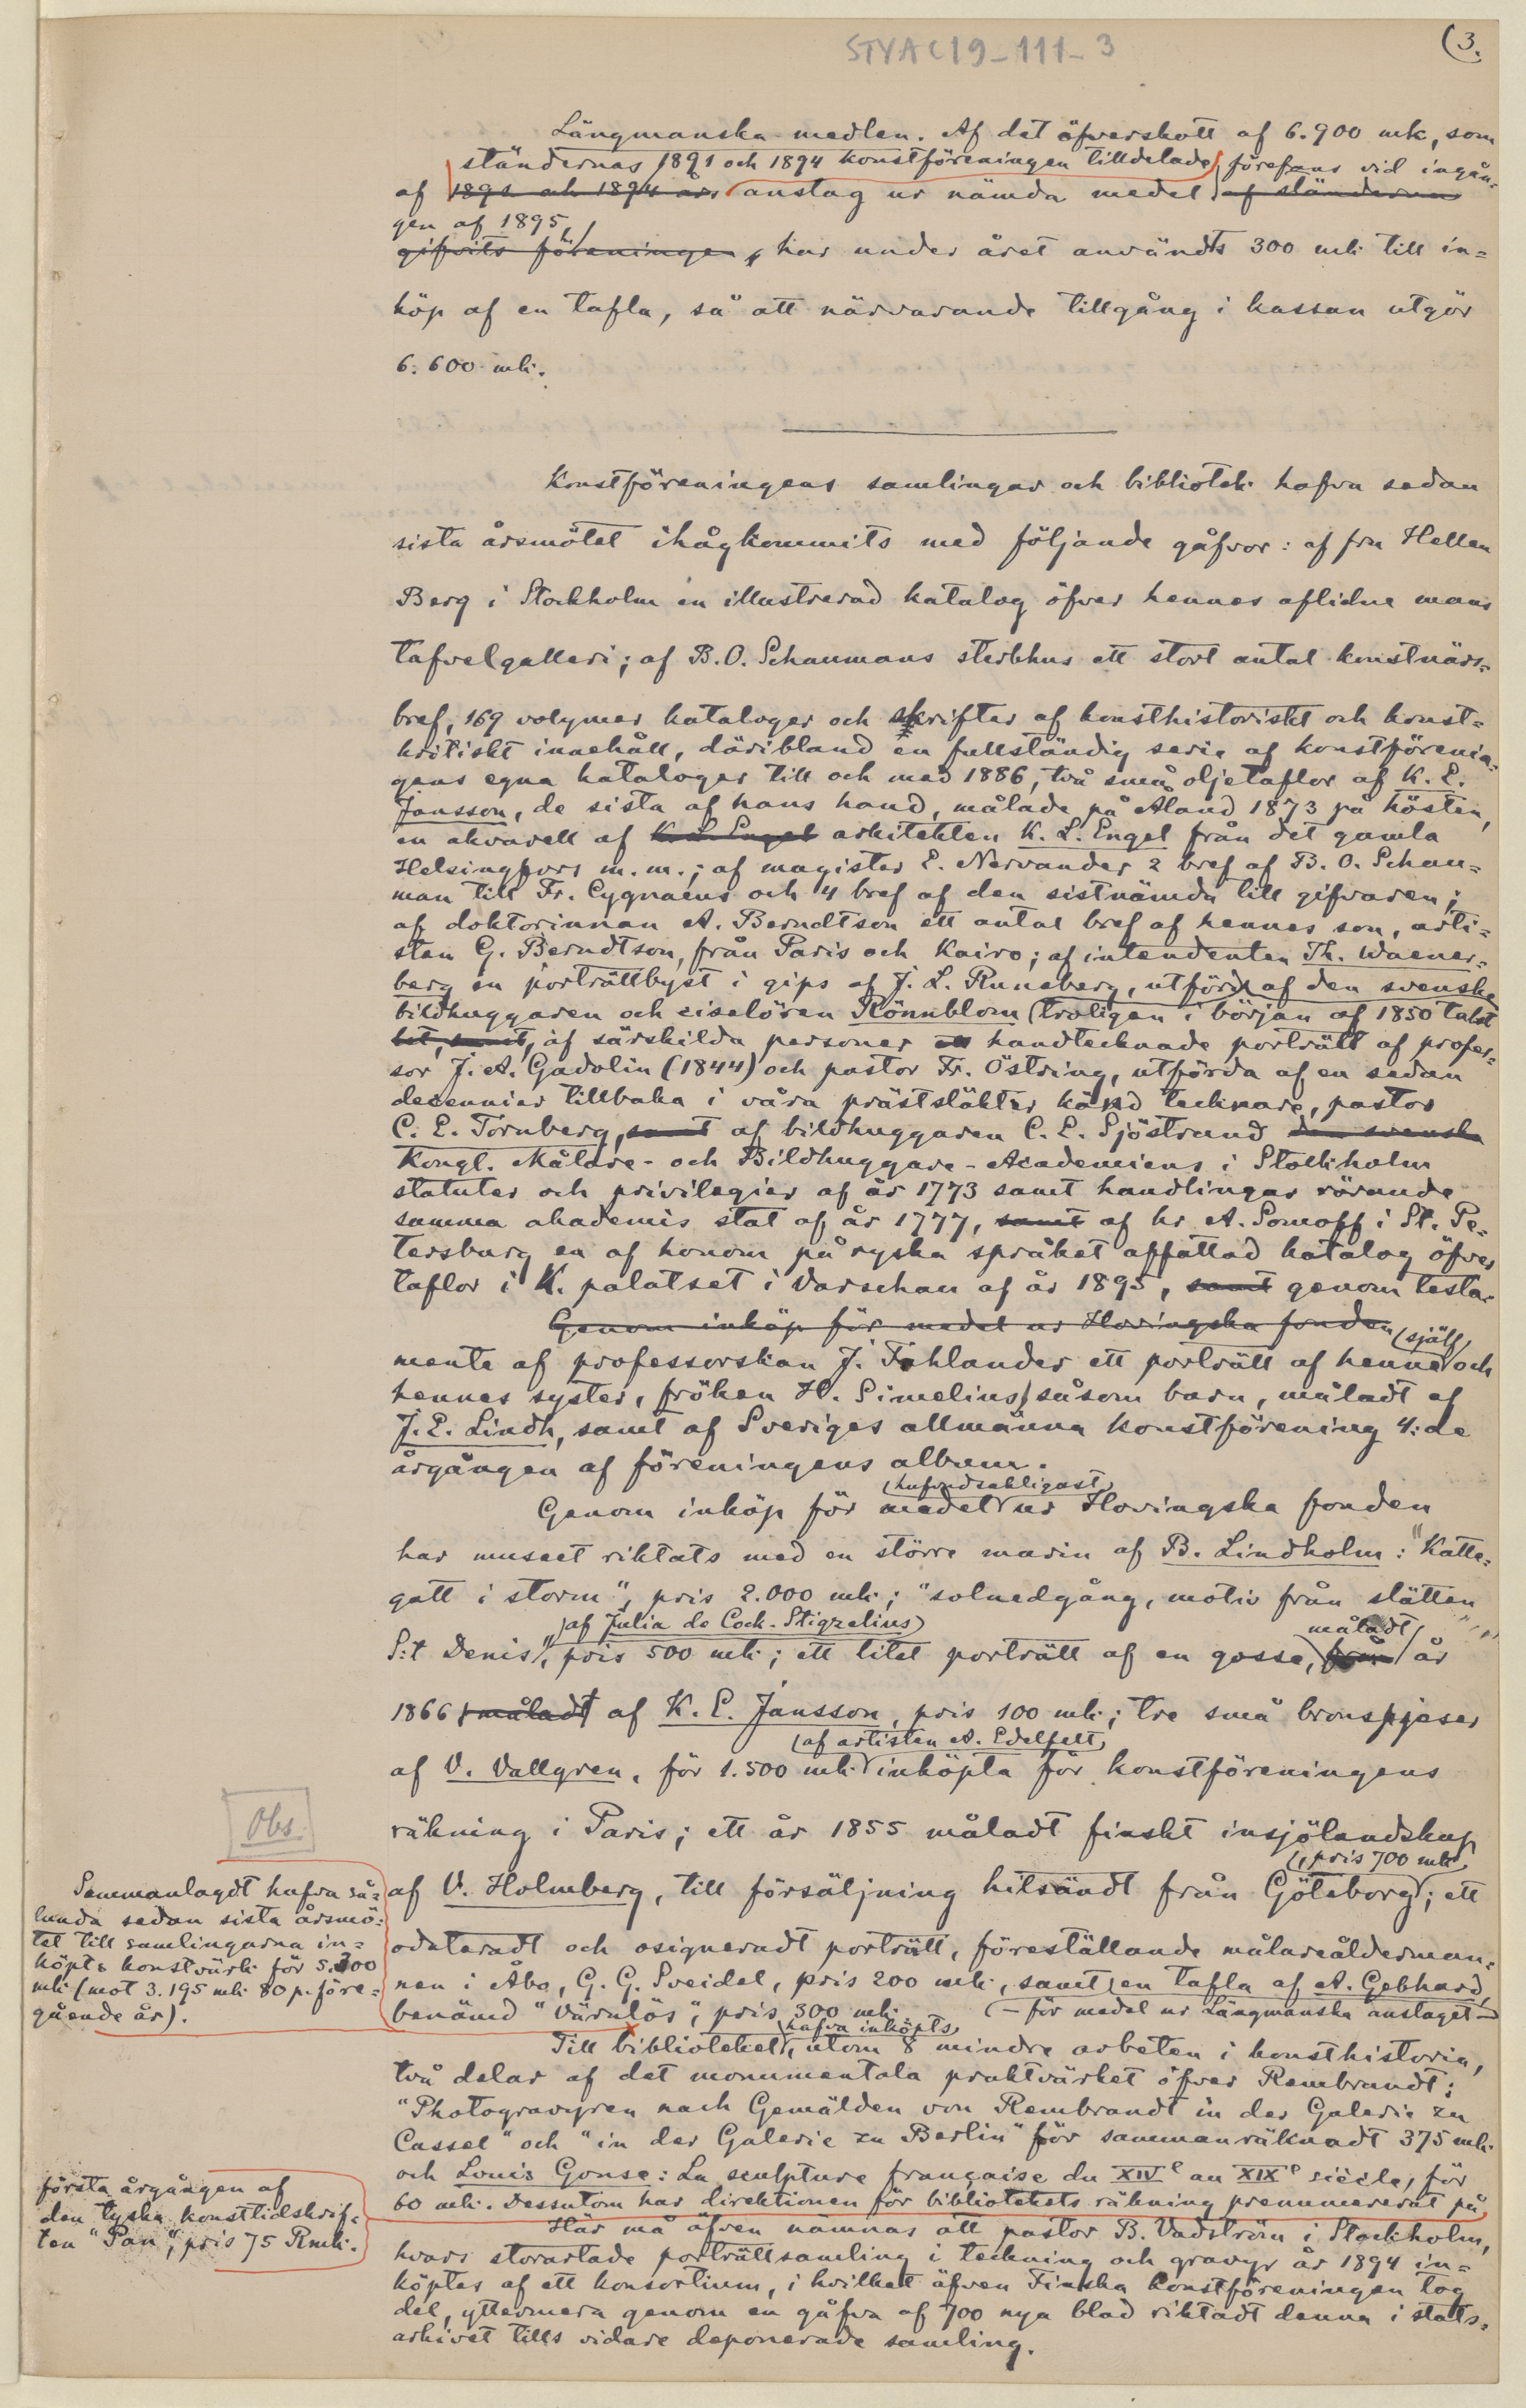 STYA C19-111-3
(3.
Längmanska medlen. Af det öfverskott af 6.900 mk, som
ständernas 1891 och 1894 konstföreningen tilldelade förefans vid ingån-
af 1891 och 1894 års anslag ur nämda medel af ständerna
gen af 1895
gifvits föreningen, har under året användts 300 mk till in=
köp af en tafla, så att närvarande tillgång i kassan utgör
6.600 mk.
Konstföreningens samlingar och bibliotek hafva sedan
sista årsmötet ihågkommits med följande gåfvor: af fru Hellen
Berg i Stockholm en illustrerad katalog öfver hennes aflidne mans
tafvelgalleri; af B. O. Schaumans sterbhus ett stort antal konstnärs=
bref, 169 volymer kataloger och skrifter af konsthistoriskt och konst=
kritiskt innehåll, däribland en fullständig serie af konstförenin=
gens egna kataloger till och med 1886, två små oljetaflor af K. E.
Jansson, de sista af hans hand, målade på Åland 1873 på hösten,
en akvarell af K. L. Engel arkitekten K. L. Engel från det gamla
Helsingfors m. m.; af magister E. Nervander 2 bref af B. O. Schau=
man till Fr. Cygnaeus och 4 bref af den sistnämda till gifvaren;
af doktorinnan A. Berndtson ett antal bref af hennes son, arti=
sten G. Berndtson, från Paris och Kairo; af intendenten Th. Waener=
berg en porträttbyst i gips af J. L. Runeberg, utförd af den svenske
bildhuggaren och ciselören Rönnblom (troligen i början af 1850 talet
samt, af särskilda personer handtecknade porträtt af profes=
sor J. A. Gadolin (1844) och pastor Fr. Östring, utförda af en sedan
decennier tillbaka i våra prästsläkter känd tecknare, pastor
C. E. Törnberg, samt af bildhuggaren C. E. Sjöstrand den svenska
Kongl. Målare- och Bildhuggare-Academiens i Stockholm
statuter och privilegier af år 1773 samt handlingar rörande
samma akademis stat af år 1777, samt af hr A. Somoff i St. Pe=
tersburg en af honom på ryska språket affattad katalog öfver
taflor i K. palatset i Varschau af år 1895, samt genom testa-
Genom inköp för medel ur Hovingska fonden
själf
mente af professorskan J. Fahlander ett porträtt af henne och
hennes syster, fröken H. Simelius såsom barn, måladt af
J. E. Lindh, samt af Sveriges allmänna konstförening 4:de
årgången af föreningens album.
hufvudsakligast
Genom inköp för medel ur Hovingska fonden
har museet riktats med en större marin af B. Lindholm: "Katte=
gatt i storm", pris 2.000 mk; "solnedgång, motiv från slätten
af Julia de Cock-Stigzelius
måladt
S:t Denis", pris 500 mk; ett litet porträtt af en gosse, från år
1866 måladt af K. E. Jansson, pris 100 mk; tre små bronspjeser
af artisten A. Edelfelt
af V. Vallgren, för 1.500 mk inköpta för konstföreningens
räkning i Paris; ett år 1855 måladt finskt insjölandskap
, pris 700 mk
af V. Holmberg, till försäljning hitsändt från Göteborg; ett
odateradt och osigneradt porträtt, föreställande målareålderman=
nen i Åbo, G. G. Sveidel, pris 200 mk, samt en tafla af A. Gebhard,
benämd "Värnlös", pris 300 mk. (— för medel ur Längmanska anslaget —
Obs
Sammanlagdt hafva så=
lunda sedan sista årsmö=
tet till samlingarna in=
köpts konstvärk för 5.300
mk (mot 3.195 mk 80 p. före=
gående år).
hafva inköpts
Till biblioteket, utom 8 mindre arbeten i konsthistoria,
två delar af det monumentala praktvärket öfver Rembrandt:
"Photogravyren nach Gemälden von Rembrandt in der Galerie zu
Cassel" och "in der Galerie zu Berlin" för sammanräknadt 375 mk.
och Louis Gonse: La sculpture française du XIVe au XIXe siècle, för
60 mk. Dessutom har direktionen för bibliotekets räkning prenumererat på
första årgången af
den tyska konsttidskrif=
ten "Pan", pris 75 Rmk.
Här må äfven nämnas att pastor B. Vadström i Stockholm,
hvars storartade porträttsamling i teckning och gravyr år 1894 in=
köptes af ett konsortium, i hvilket äfven Finska Konstföreningen tog
del, yttermera genom en gåfva af 700 nya blad riktadt denna i stats=
arkivet tills vidare deponerade samling.